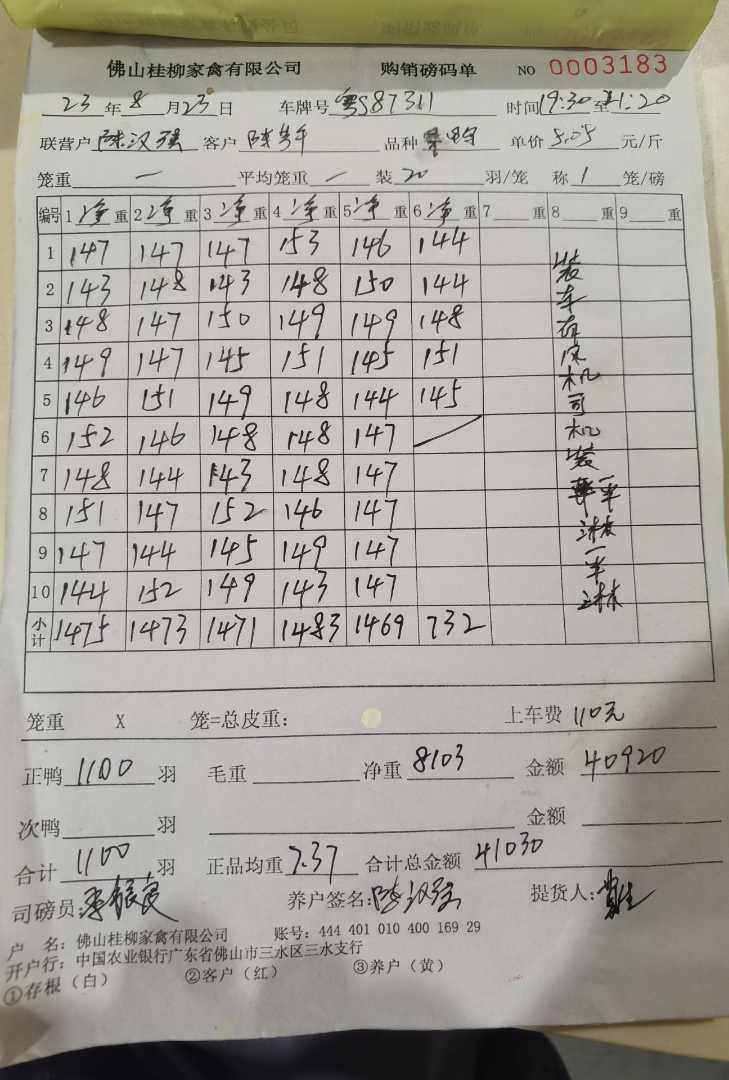 佛山桂柳家禽有限公司 购销磅码单 NO 0003183
23年8月23日 车牌号 粤S87311 时间19:30至21:20
联营户 陈汉强 客户 品种 单价 5.05 元/斤
笼重 一 平均笼重 一 装 20 羽/笼 称 1 笼/磅
编号 1净重 2净重 3净重 4净重 5净重 6净重 7 重 8 重 9 重
1 147 147 147 153 146 144
2 143 148 143 148 150 144
3 148 147 150 149 149 148
4 149 147 145 151 145 151
5 146 151 149 148 144 145
6 152 146 148 148 147
7 148 144 143 148 147
8 151 147 152 146 147
9 147 144 145 149 147
10 144 152 149 143 147
小计 1475 1473 1471 1483 1469 732
装车有风机司机装一半淋一半淋
笼重 X 笼=总皮重: 上车费 110元
正鸭 1100 羽 毛重 净重 8103 金额 40920
次鸭 羽 金额
合计 1100 羽 正品均重 7.37 合计总金额 41030
司磅员: 养户签名:陈汉强 提货人:
户 名: 佛山桂柳家禽有限公司 账号: 444 401 010 400 169 29
开户行: 中国农业银行广东省佛山市三水区三水支行
①存根(白) ②客户(红) ③养户(黄)